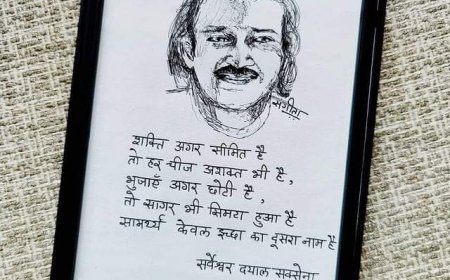 संगीता
शक्ति अगर सीमित है
तो हर चीज अशक्त भी है,
भुजाएँ अगर छोटी है,
तो सागर भी सिमटा हुआ है
सामर्थ्य केवल इच्छा का दूसरा नाम है
सर्वेश्वर दयाल सक्सेना